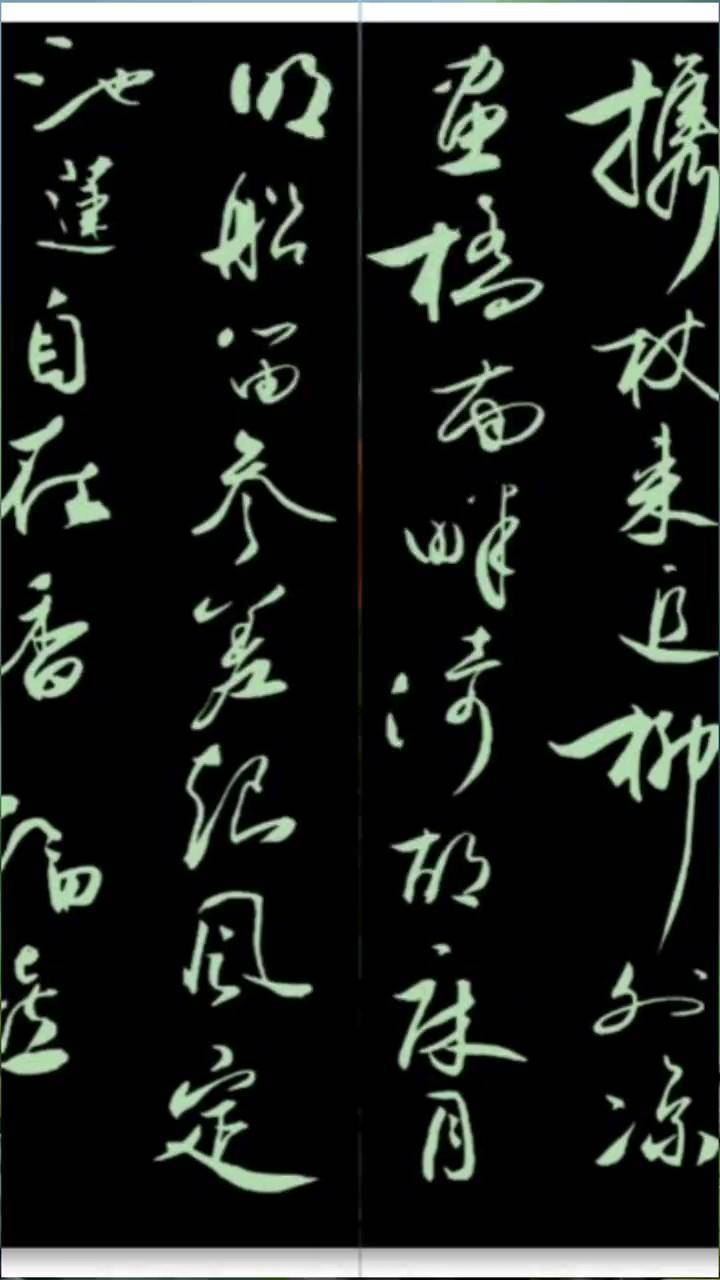 携杖来追柳外凉
畫橋南畔倚胡床月
明船笛参差起風定
池蓮自在香